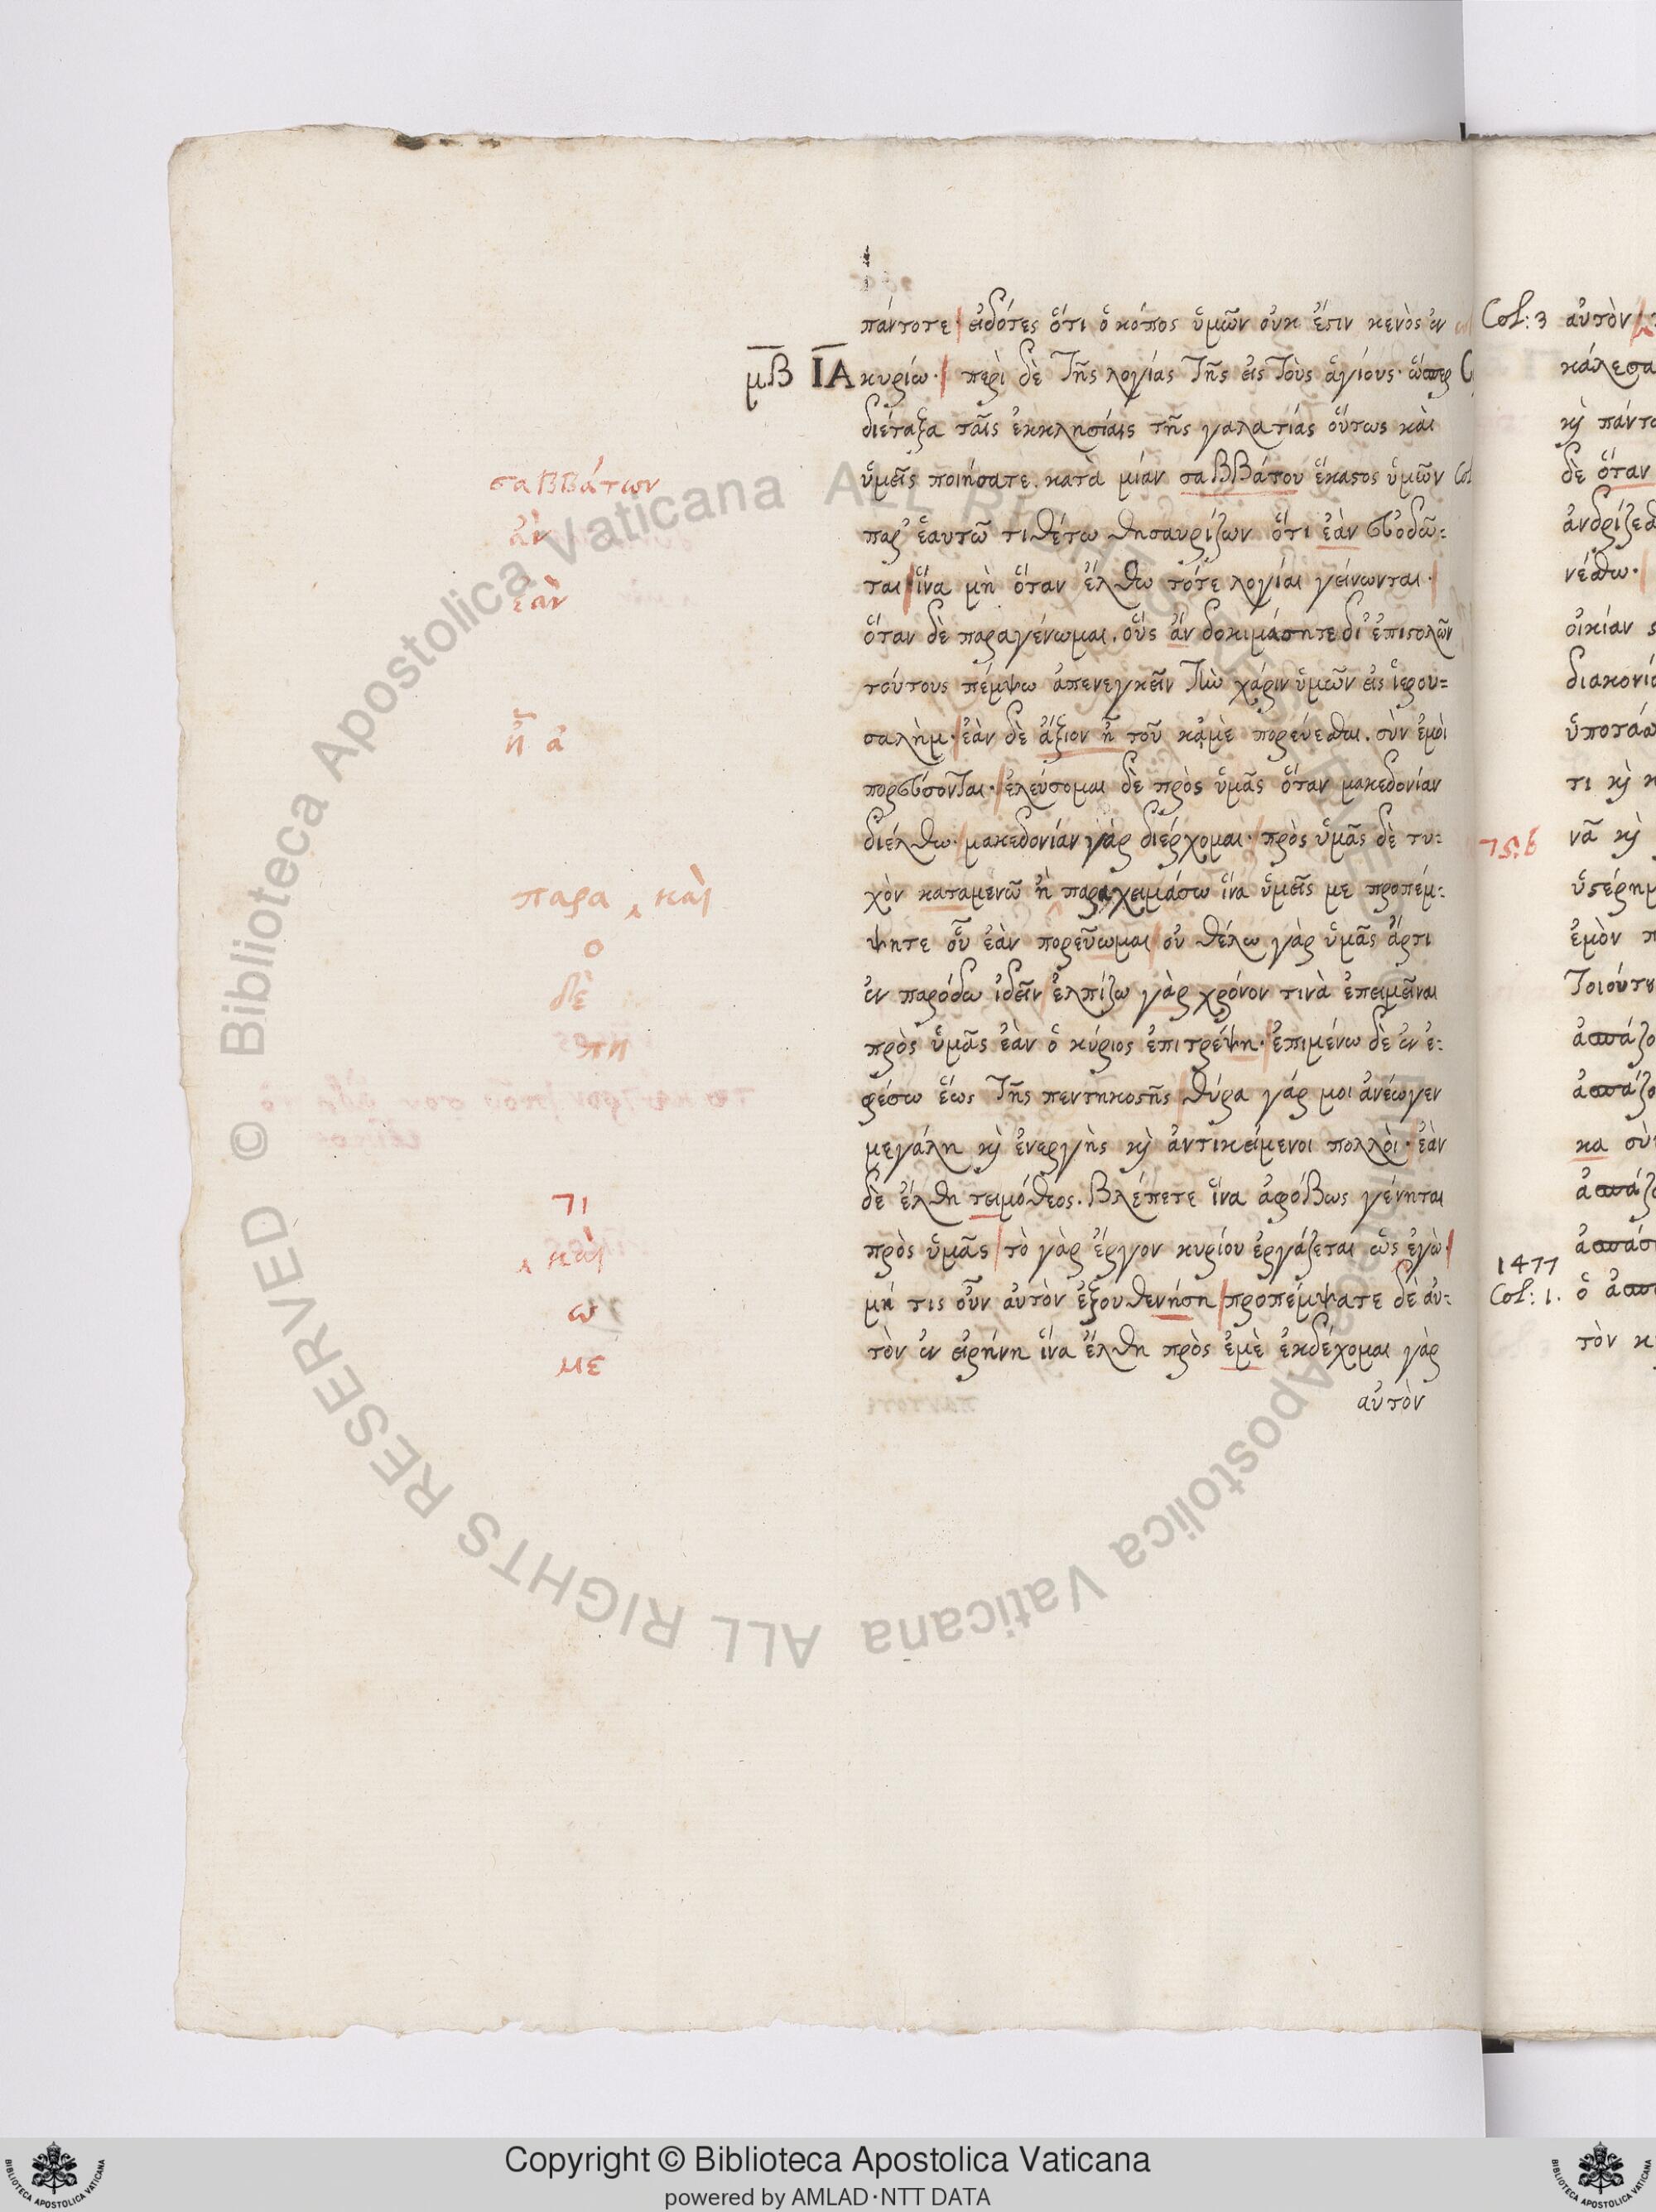 πάντοτε· εἰδότες ὅτι ὁ κόπος ὑμῶν οὐκ ἔστιν κενὸς ἐν
μβ ΙΑ κυρίω· περὶ δὲ τῆς λογίας τῆς εἰς τοὺς ἁγίους· ὥσπερ
διέταξα ταῖς ἐκκλησίαις τῆς γαλατίας οὕτως καὶ
σαββάτων ὑμεῖς ποιήσατε. κατὰ μίαν σαββάτου ἕκαστος ὑμῶν
ἀν παρ' ἑαυτῶ τιθέτω θησαυρίζων ὅτι ἐὰν εὐοδῶ-
ἐὰν ται ἵνα μὴ ὅταν ἔλθω τότε λογίαι γείνωνται·
ὅταν δὲ παραγένωμαι. οὓς ἂν δοκιμάσητε δι' ἐπιστολῶν
τούτους πέμψω ἀπενεγκεῖν τὴν χάριν ὑμῶν εἰς ἱερου-
ἦ ἀ σαλὴμ· ἐὰν δὲ ἄξιον ἦ τοῦ κἀμὲ πορεύεσθαι. σὺν ἐμοὶ
πορεύσονται· ἐλεύσομαι δὲ πρὸς ὑμᾶς ὅταν μακεδονίαν
διέλθω· μακεδονίαν γὰρ διέρχομαι· πρὸς ὑμᾶς δὲ τυ-
παρα ‸ καὶ χὸν καταμενῶ ἢ παραχειμάσω ἵνα ὑμεῖς με προπέμ-
ο ψητε οὗ ἐὰν πορεύωμαι οὐ θέλω γὰρ ὑμᾶς ἄρτι
δὲ ἐν παρόδω ἰδεῖν ἐλπίζω γὰρ χρόνον τινὰ ἐπειμεῖναι
πη πρὸς ὑμᾶς ἐὰν ὁ κύριος ἐπιτρέψη· ἐπιμένω δὲ ἐν ἐ-
φέσω ἕως τῆς πεντηκοστῆς θύρα γάρ μοι ἀνέωγεν
μεγάλη κὶ ἐνεργὴς κὶ ἀντικείμενοι πολλὸι· ἐὰν
τι δὲ ἔλθη τειμόθεος. βλέπετε ἵνα ἀφόβως γένηται
‸ καὶ πρὸς ὑμᾶς τὸ γὰρ ἔργον κυρίου ἐργάζεται ὡς ἐγὼ·
ω μή τις οὖν αὐτὸν ἐξουθενήση προπέμψατε δὲ αὐ-
με τὸν ἐν εἰρήνη ἵνα ἔλθη πρὸς ἐμὲ ἐκδέχομαι γὰρ
αὐτὸν
Col: 3 αὐτὸν
κάλεσα
κὶ πάντ
δὲ ὅταν
ἀνδρίζεσ
νέσθω·
οἰκίαν
διακονί
ὑποτάσ
τι κὶ
νᾶ κὶ
ὑστέρημ
ἐμὸν π
τοιούτ
ἀσπάζο
ἀσπάζο
κα σὺ
ἀσπάζ
ἀσπάσ
1477
Col: 1. ὁ ἀσπ
τὸν κ
© Biblioteca Apostolica Vaticana ALL RIGHTS RESERVED
Copyright © Biblioteca Apostolica Vaticana
powered by AMLAD·NTT DATA
BIBLIOTECA APOSTOLICA VATICANA
BIBLIOTECA APOSTOLICA VATICANA